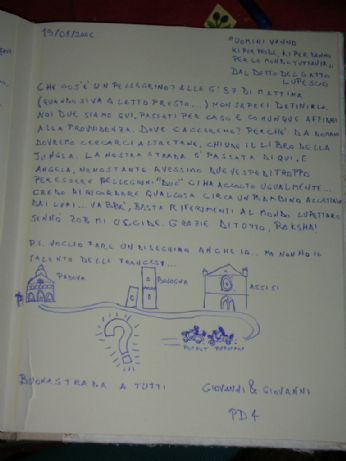 19/08/2006
"UOMINI VANNO
PER LO MONDO TUTTAVIA..."
DAL DETTO DEL GATTO
LUPESCO
CHE COS'È UN PELLEGRINO? ALLE 6:57 DI MATTINA
(QUANDO SI VA A LETTO PRESTO...) NON SAPREI DEFINIRLO.
NOI DUE SIAMO QUI, PASSATI PER CASO E COMUNQUE AFFIDATI
ALLA PROVVIDENZA. DOVE CACCEREMO? PERCHÈ DA DOMANI
DOVREMO CERCARCI ALTRE TANE, CHIUSO IL LIBRO DELLA
JUNGLA. LA NOSTRA STRADA È PASSATA DI QUI, E
ANGELA, NONOSTANTE AVESSIMO DUE VESPE DI TROPPO
PER ESSERE PELLEGRINI "DUE" CI HA ACCOLTO UGUALMENTE...
CREDO DI RICORDARE QUALCOSA CIRCA UN BAMBINO ALLATTATO
DAI LUPI... VABBÈ, BASTA RIFERIMENTI AL MONDO LUPETTARO
SENNÒ MI UCCIDE. GRAZIE DI TUTTO, RAKSHA!
P.S. VOGLIO FARE UN DISEGNINO ANCH'IO... MA NON HO IL
TALENTO DELLE FRANCESI...
PADOVA
BOLOGNA
ASSISI
?
POTPOT POTPOTPOT
BUONA STRADA A TUTTI
GIOVANNI & GIOVANNI
PD 4